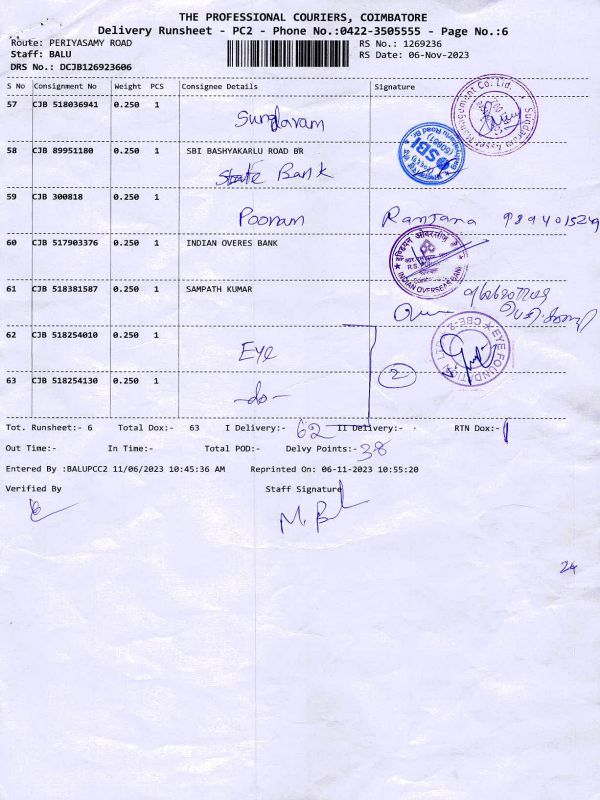 THE PROFESSIONAL COURIERS, COIMBATORE
Delivery Runsheet - PC2 - Phone No.:0422-3505555 - Page No.:6
Route: PERIYASAMY ROAD
RS No.: 1269236
Staff: BALU
RS Date: 06-Nov-2023
DRS No.: DCJB126923606
S No Consignment No Weight PCS Consignee Details Signature
57 CJB 518036941 0.250 1
Sundaram
58 CJB 89951180 0.250 1 SBI BASHYAKARLU ROAD BR
State Bank
SBI
59 CJB 300818 0.250 1
Poonam Ranjana
60 CJB 517903376 0.250 1 INDIAN OVERES BANK
इण्डियन ओवरसीज़ बैंक
INDIAN OVERSEAS BANK
61 CJB 518381587 0.250 1 SAMPATH KUMAR
62 CJB 518254010 0.250 1
Eye
EYE FOUNDATION
CBE-2
63 CJB 518254130 0.250 1
-do-
2
Tot. Runsheet:- 6 Total Dox:- 63 I Delivery:- 62 II Delivery:- RTN Dox:- 1
Out Time:- In Time:- Total POD:- Delvy Points:- 38
Entered By :BALUPCC2 11/06/2023 10:45:36 AM Reprinted On: 06-11-2023 10:55:20
Verified By Staff Signature
24